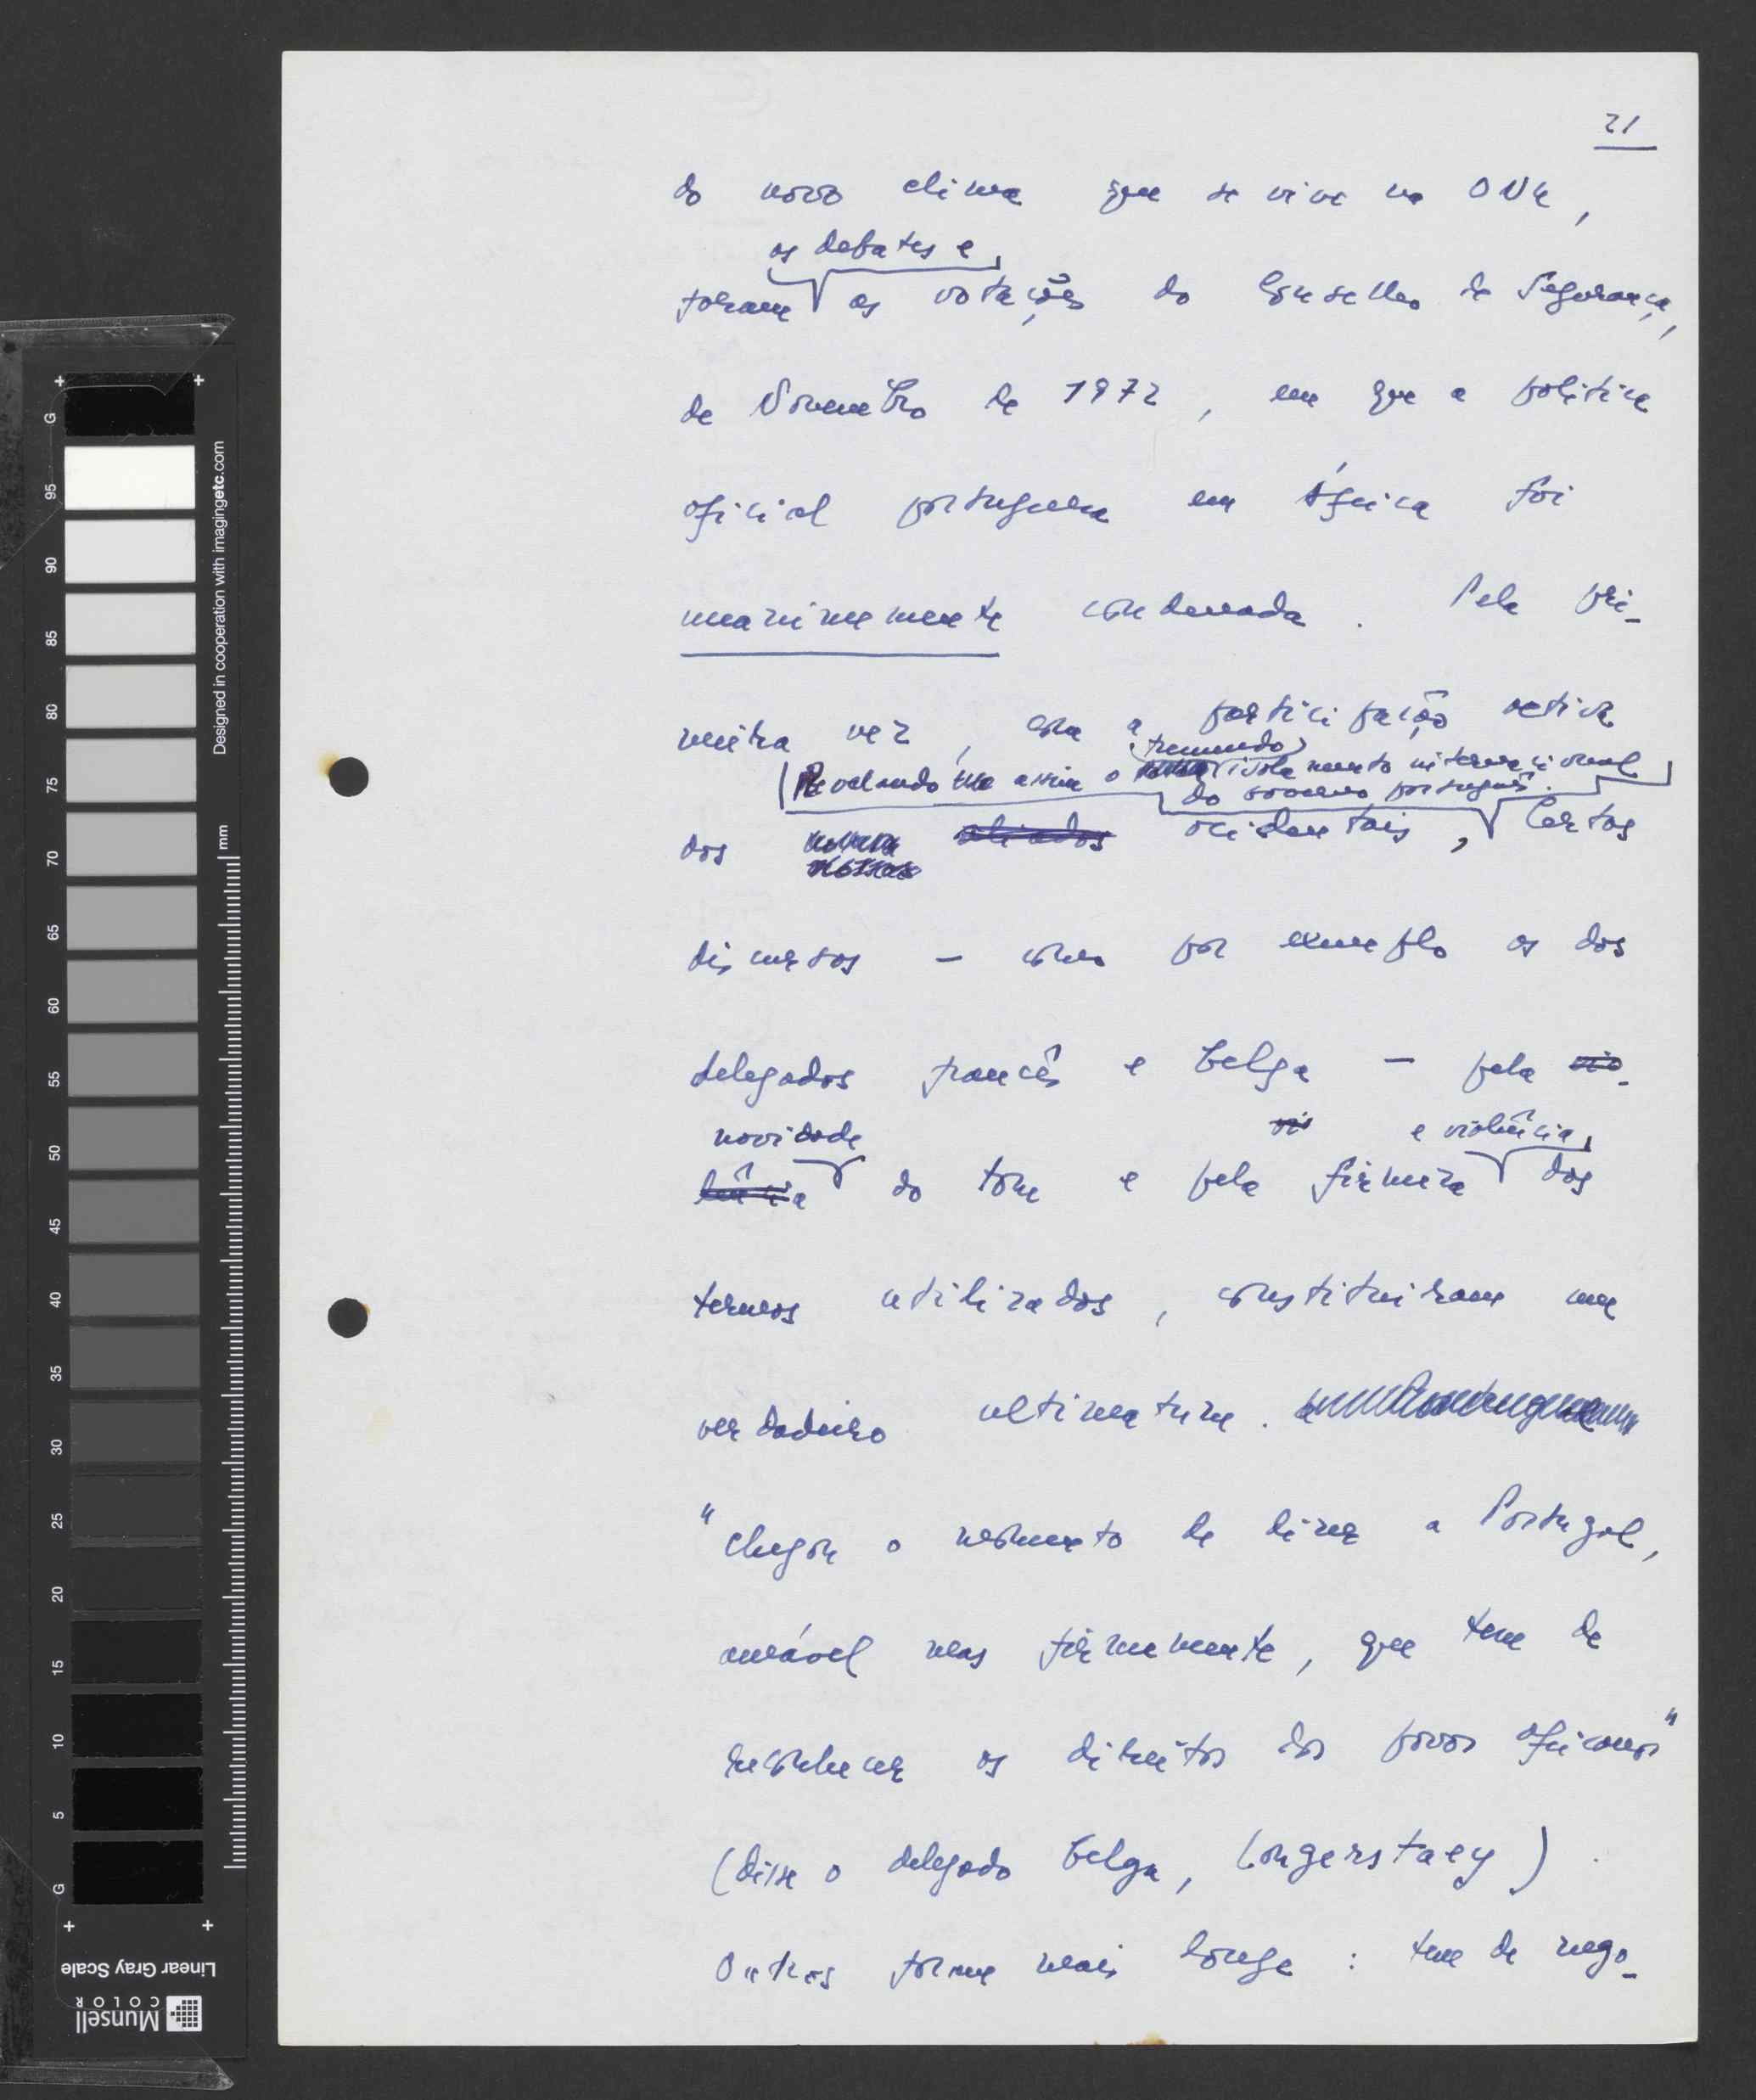 21
do novo clima que se vive na ONU,
os debates e
foram as votações do Conselho de Segurança,
de Novembro de 1972, em que a política
oficial portuguesa em África foi
unanimemente condenada. Pela pri-
meira vez, com a participação activa
tremendo
Revelando assim o isolamento internacional
do governo português.
dos aliados ocidentais, Certos
discursos — como por exemplo os dos
delegados francês e belga — pela vio-
novidade vio e violência
lência do tom e pela firmeza dos
termos utilizados, constituiram um
verdadeiro ultimatum.
"Chegou o momento de dizer a Portugal,
amável mas firmemente, que tem de
reconhecer os direitos dos povos africanos"
(disse o delegado belga, Longerstaey).
Outros foram mais longe: tem de nego-
G 95 90 85 80 75 70 65 60 55 50 45 40 35 30 25 20 15 10 5 G
mm
Designed in cooperation with imagingetc.com
Linear Gray Scale
Munsell
COLOR